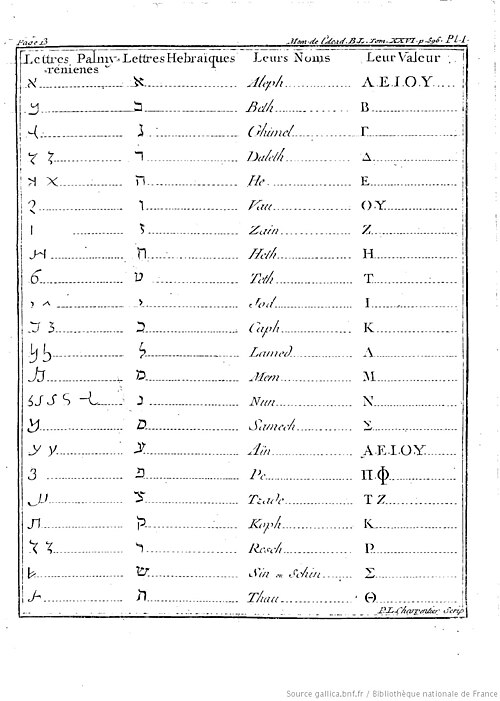 Page 13 Mem. de l'Acad. B.L. Tom. XXVI. p. 596. Pl. I.
Lettres Palmy- Lettres Hebraiques Leurs Noms Leur Valeur
réniènes
א Aleph A.E.I.O.Y.
ב Beth B
ג Ghimel Γ
ד Daleth Δ
ה He E
ו Vau OY
ז Zain Z
ח Heth H
ט Teth T
י Jod I
כ Caph K
ל Lamed Λ
מ Mem M
נ Nun N
ס Samech Σ
ע Ain A.E.I.O.Y.
פ Pe Π Φ
צ Tzade T Z
ק Koph K
ר Resch P
ש Sin ou Schin Σ
ת Thau Θ
P.L. Charpentier Scrip.
Source gallica.bnf.fr / Bibliothèque nationale de France